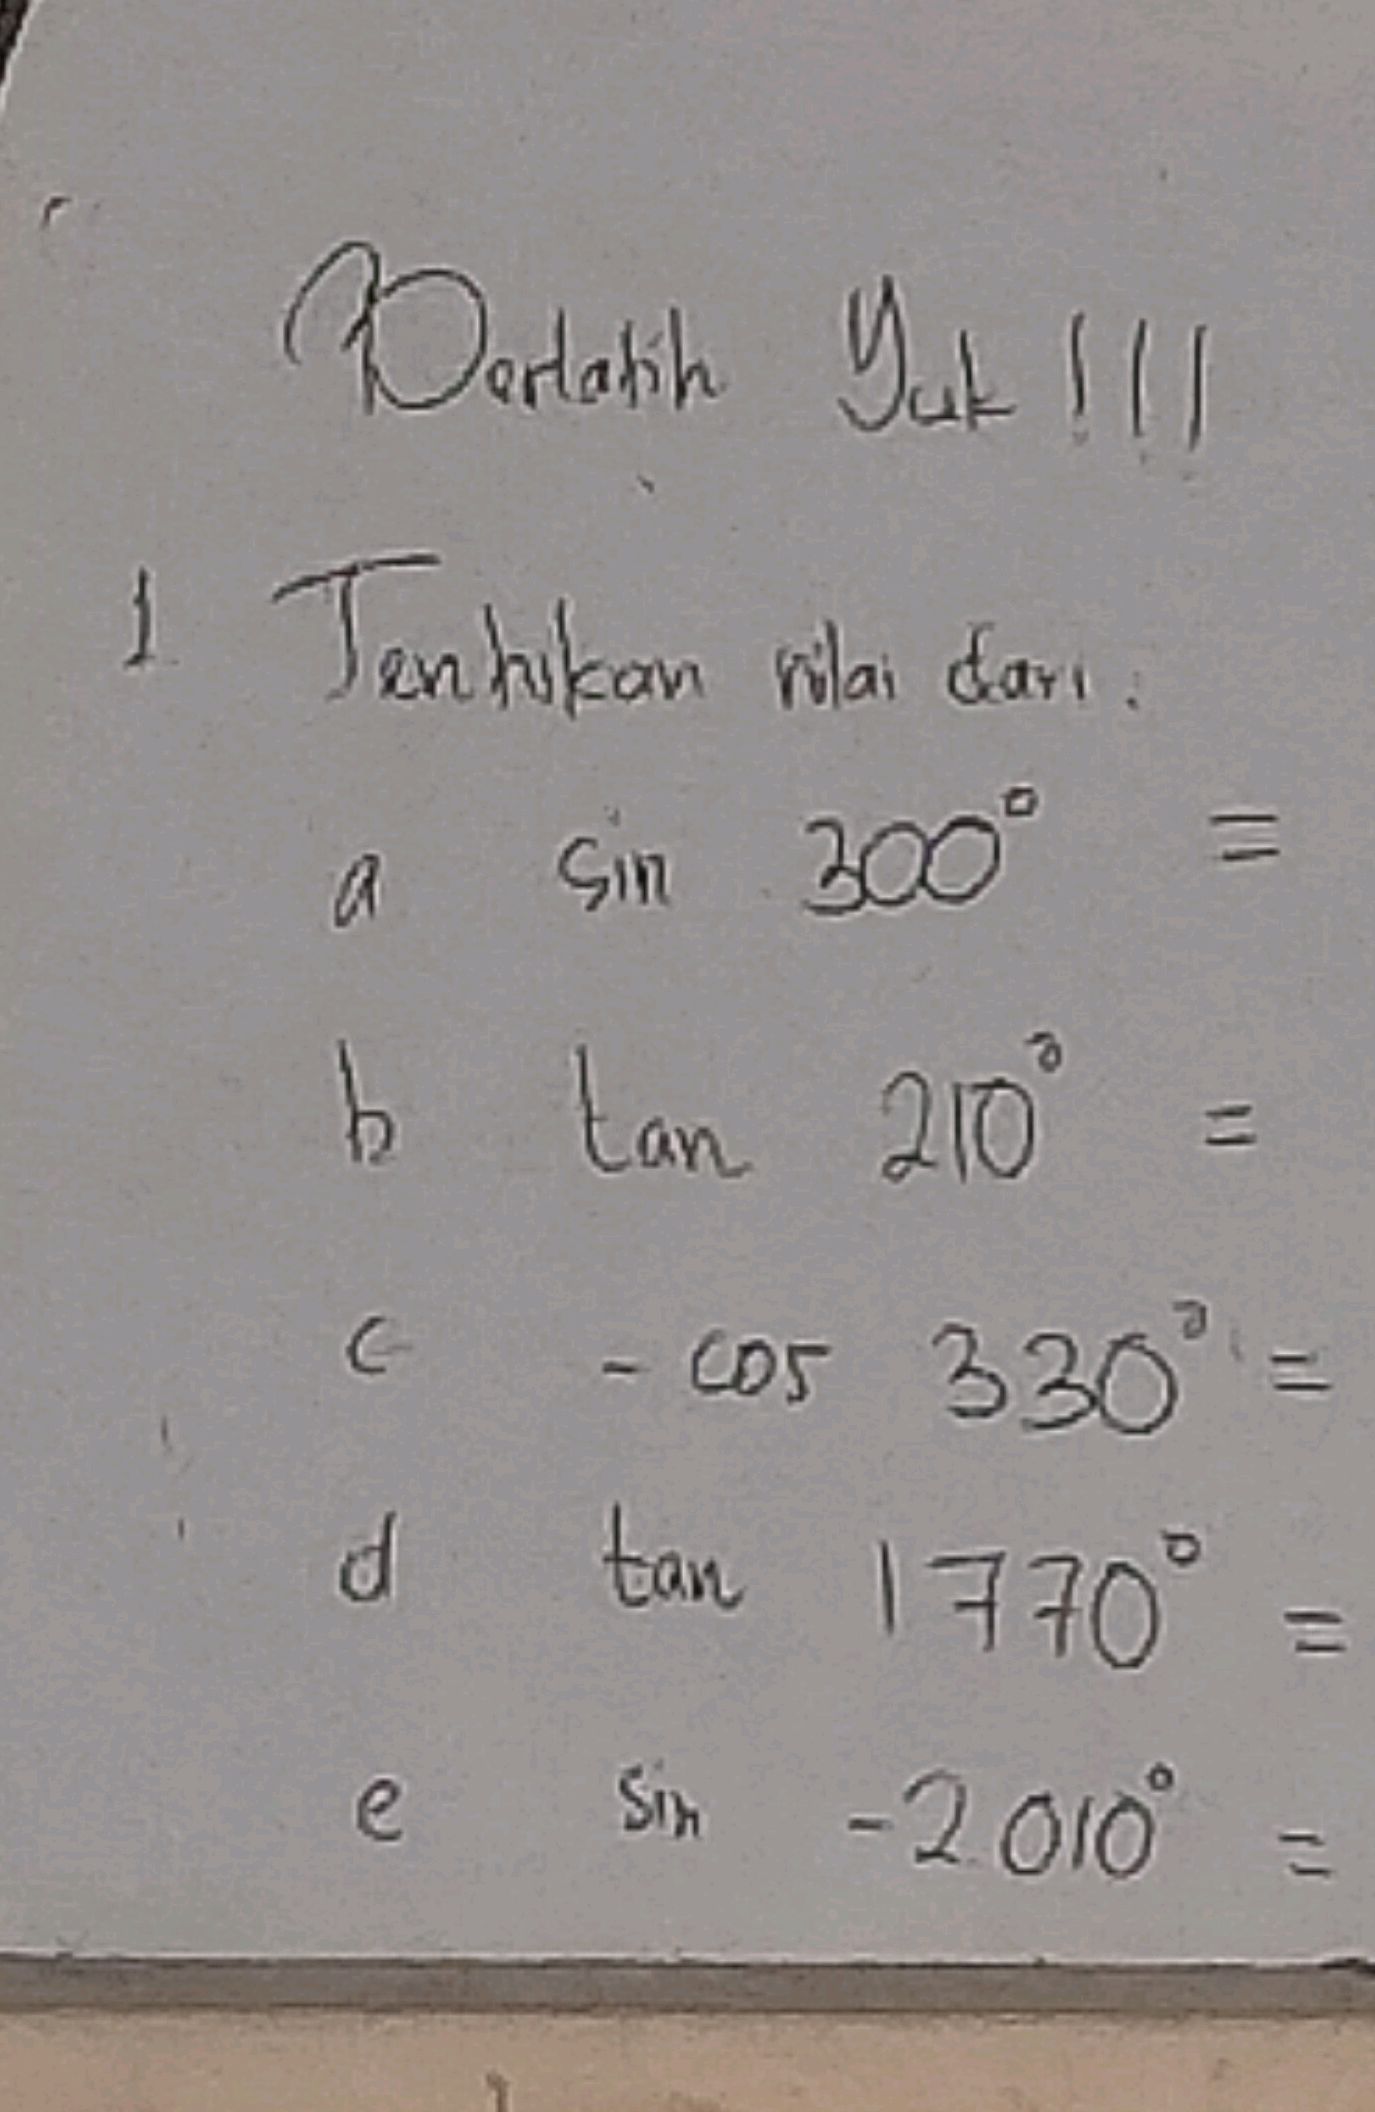 Berlatih Yuk !!!
1 Tentukan nilai dari :
a sin 300° =
b tan 210° =
c - cos 330° =
d tan 1770° =
e sin -2010° =